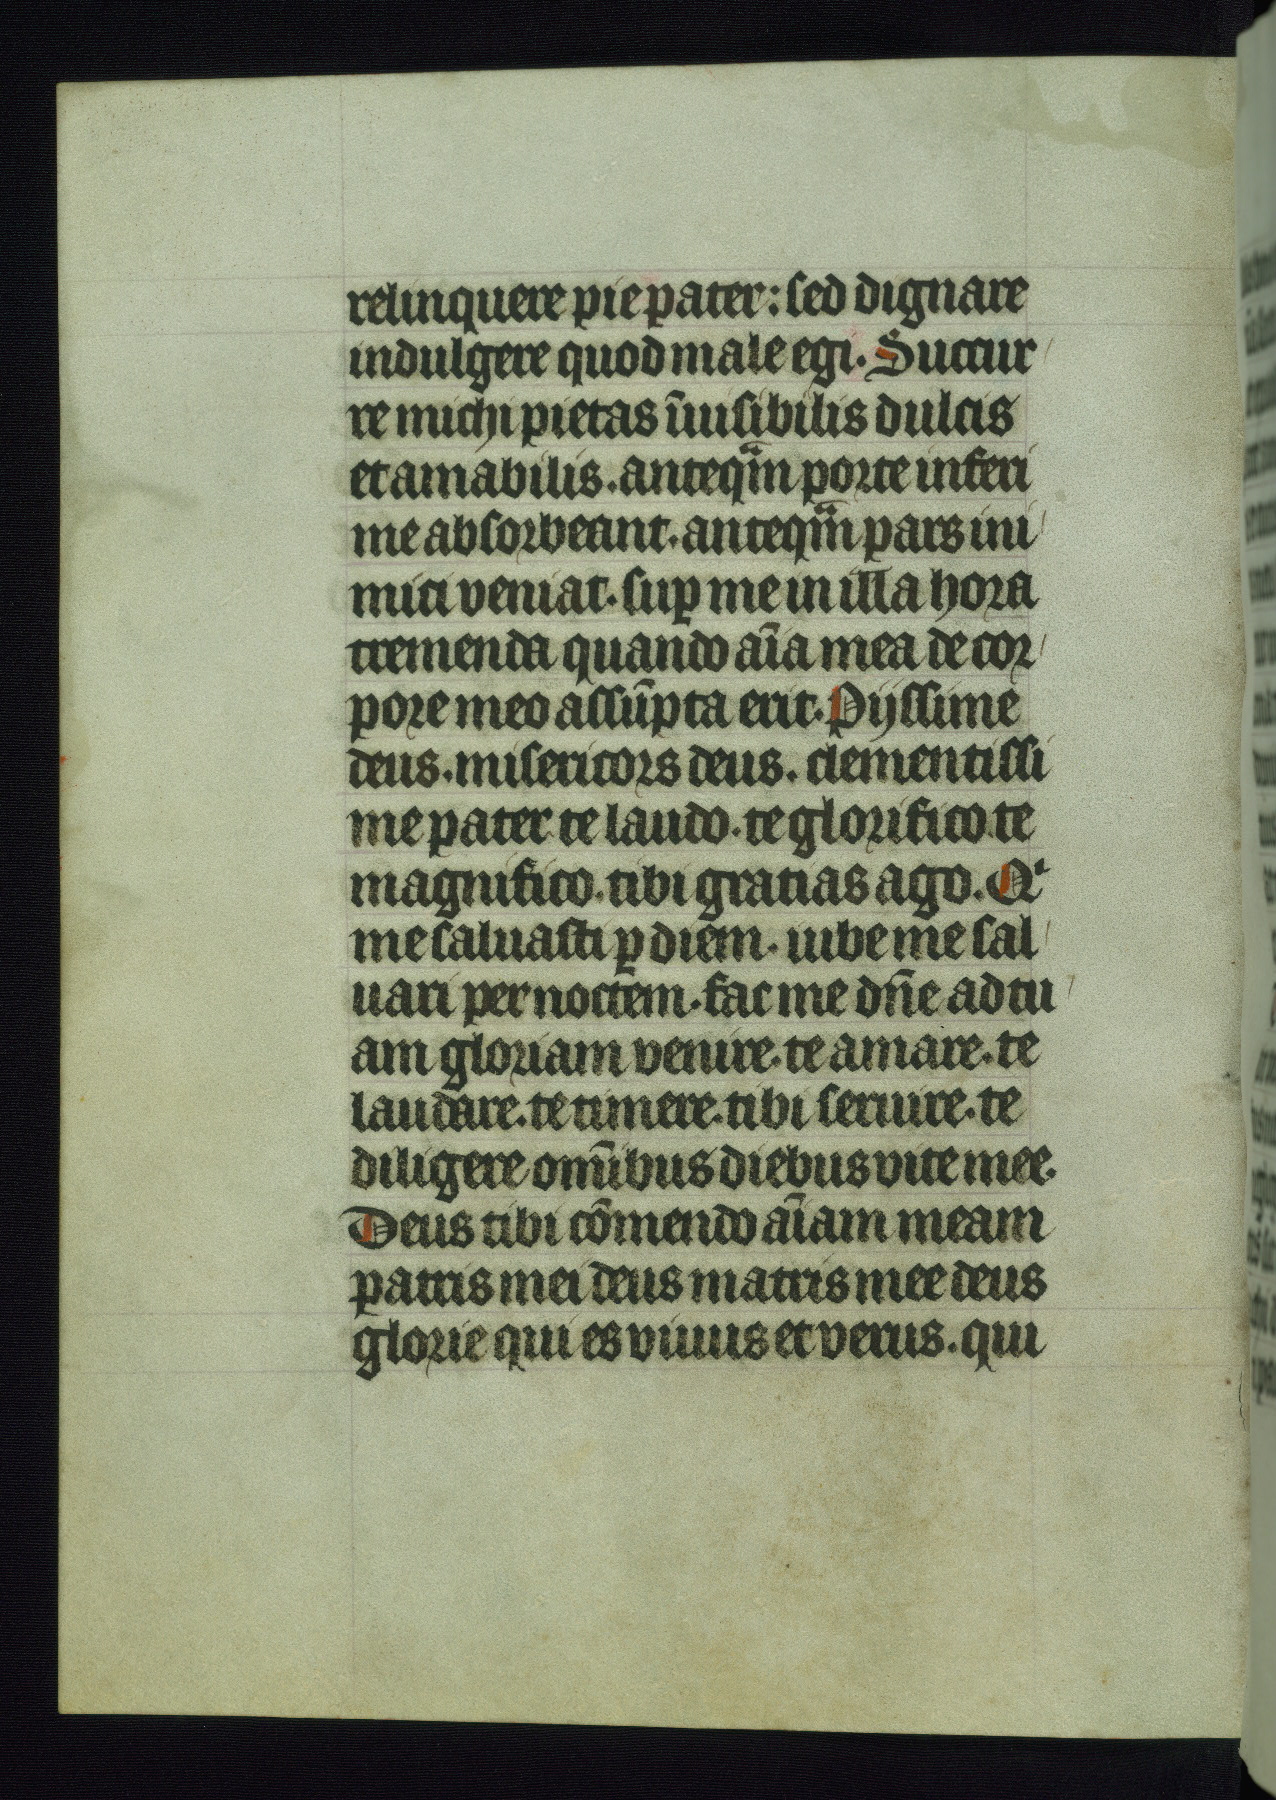 relinquere pie pater: sed dignare
indulgere quod male egi. Succur
re michi pietas ĩuisibilis dulcis
et amabilis. anteqᷓm porte inferi
me absorbeant. anteqᷓm pars ini
mici veniat. suꝑ me in illa hora
tremenda quando aĩa mea de cor
pore meo assũpta erit. Pijssime
deus. misericors deus. clementissi
me pater te laudo. te glorifico te
magnifico. tibi gratias ago. Qͥ
me saluasti ꝑ diem. iube me sal
uari per noctem. fac me dñe ad tu
am gloriam venire. te amare. te
laudare. te timere. tibi seruire. te
diligere omĩbus diebus vite mee.
Deus tibi cõmendo aĩam meam
patris mei deus matris mee deus
glorie qui es viuus et verus. qui